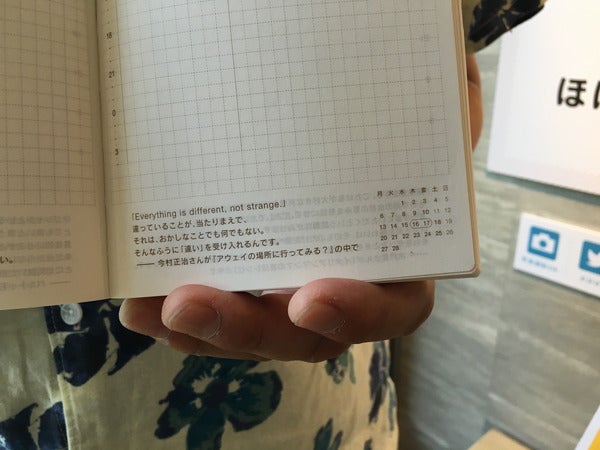 18
21
0
3
「Everything is different, not strange.」
違っていることが、当たりまえで、
それは、おかしなことでも何でもない。
そんなふうに「違い」を受け入れるんです。
—— 今村正治さんが『アウェイの場所に行ってみる?』の中で
月 火 水 木 金 土 日
1 2 3 4 5
6 7 8 9 10 11 12
13 14 15 16 17 18 19
20 21 22 23 24 25 26
27 28
い。
ほぼ